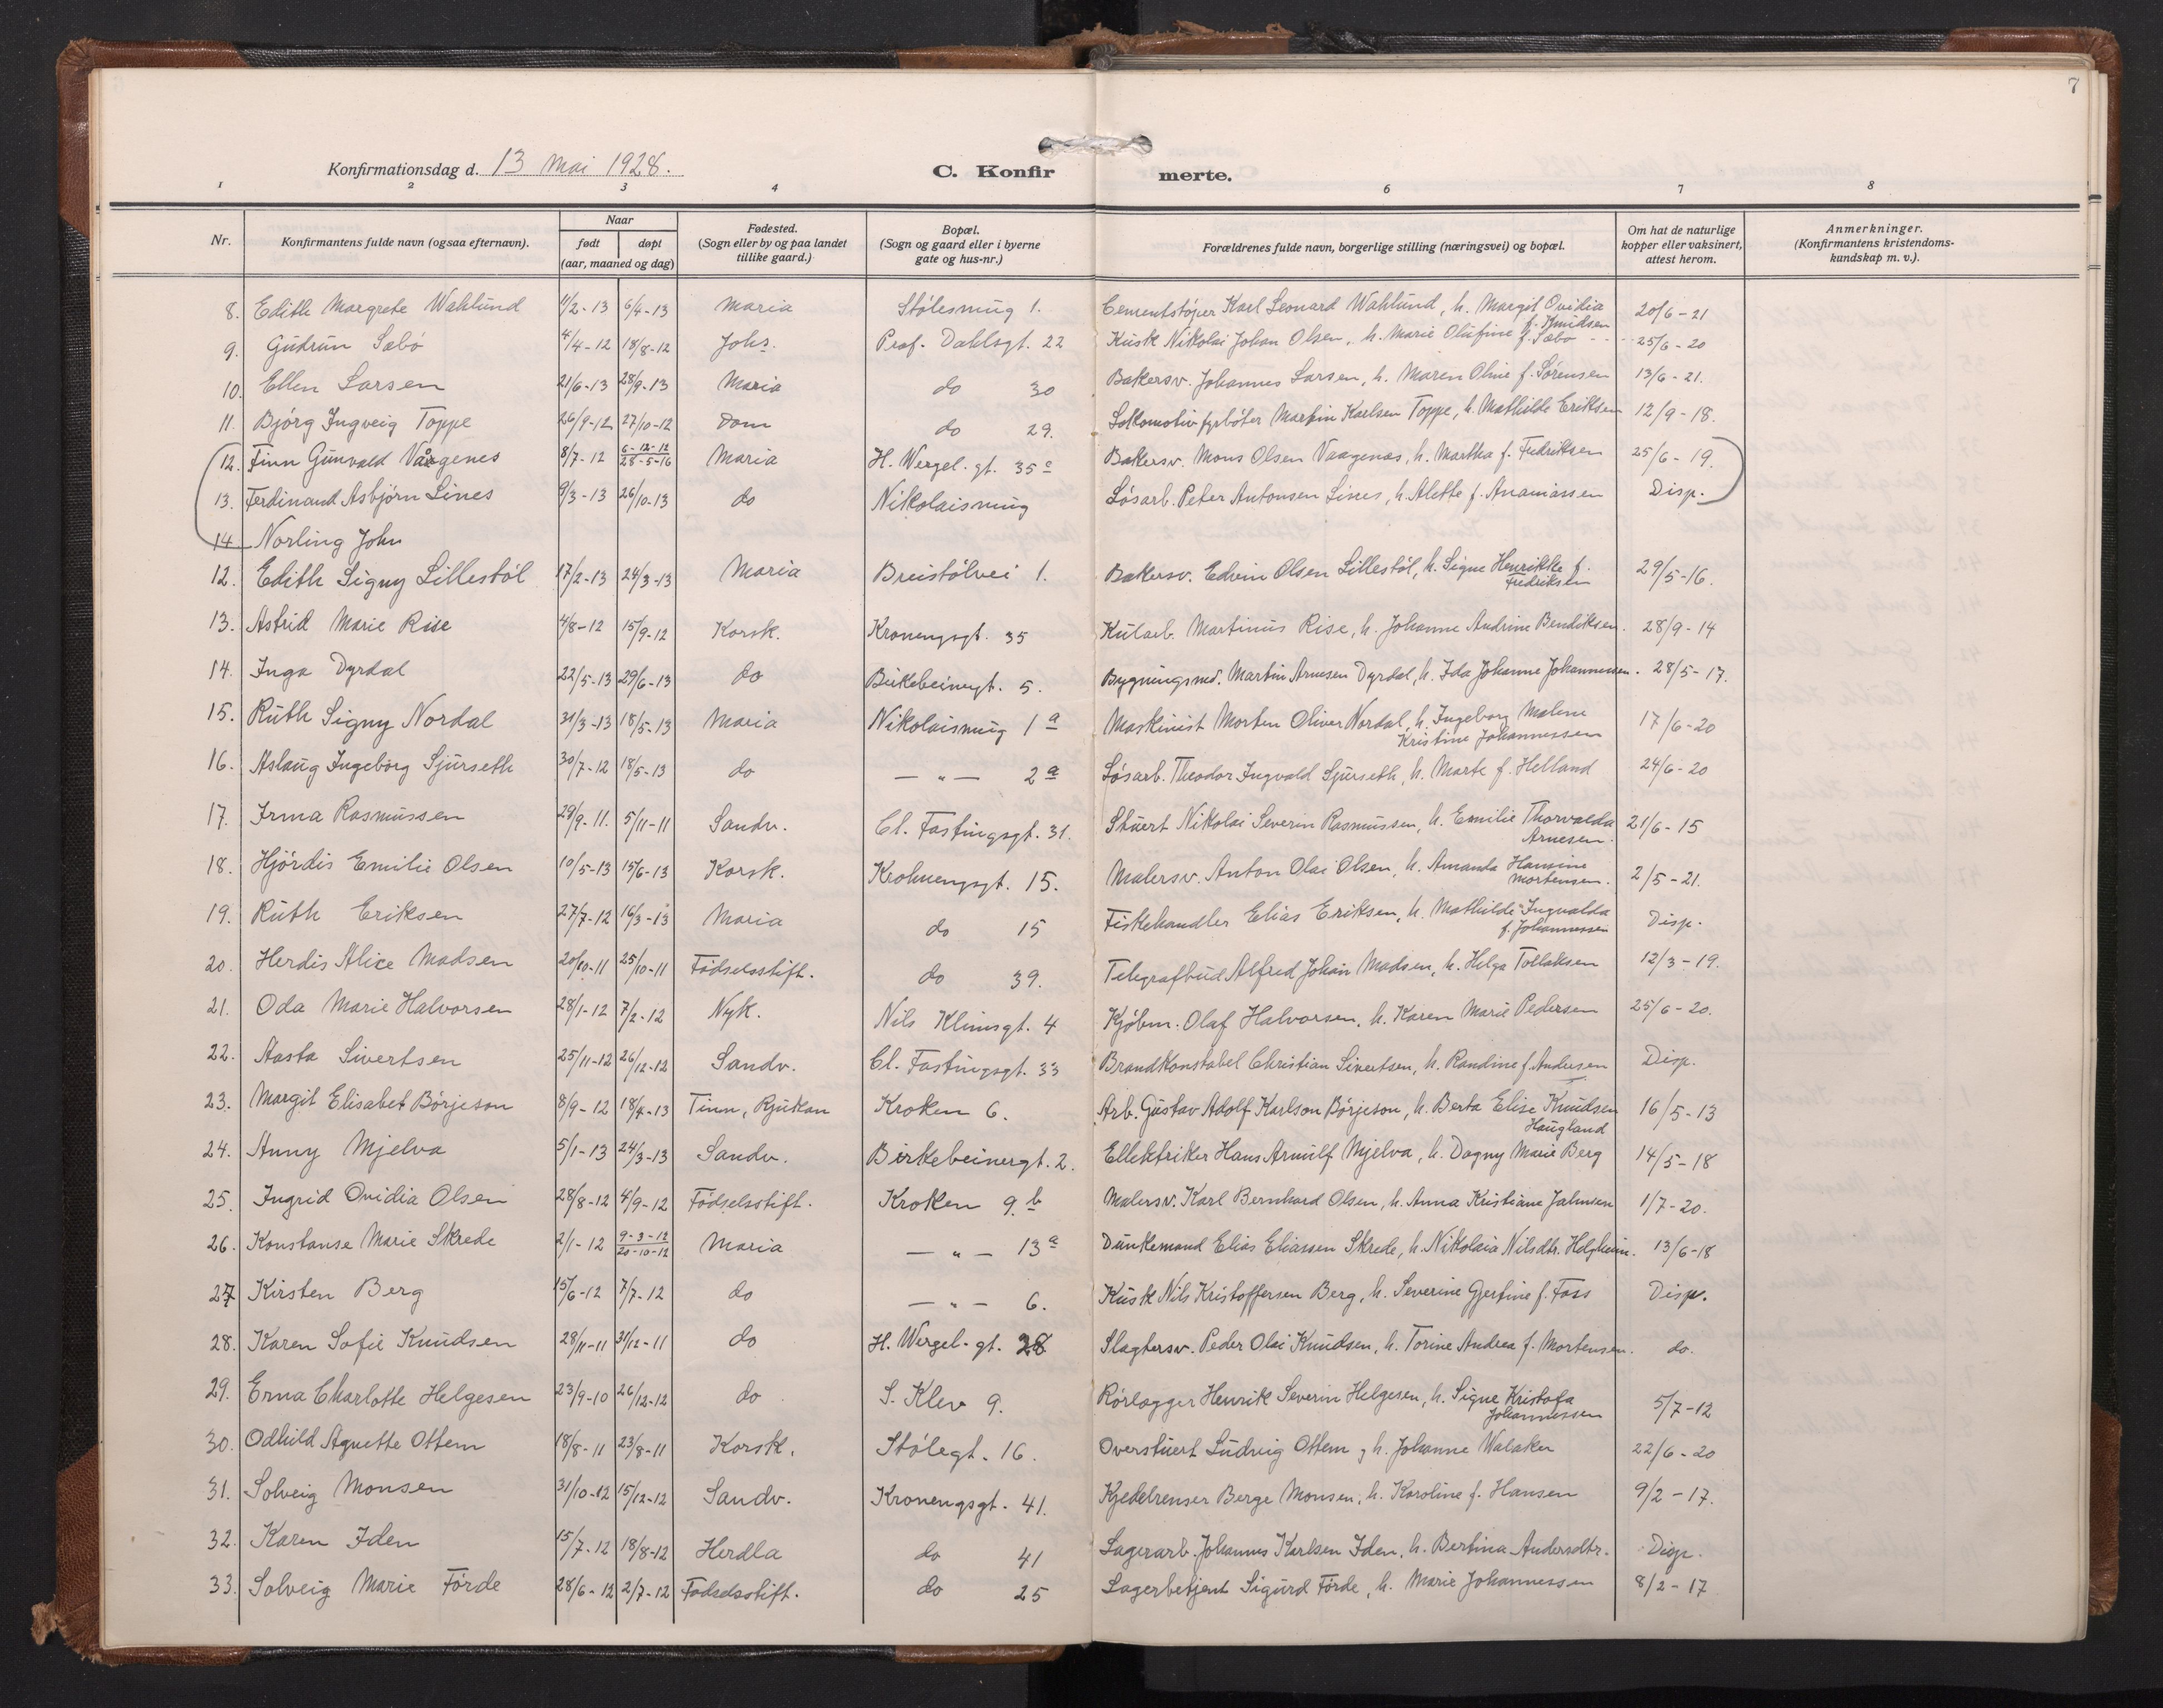 7
Konfirmationsdag d. 13 Mai 1928.
C. Konfirmerte.
1 2 3 4 6 7 8
Nr. Konfirmantens fulde navn (ogsaa efternavn). Naar født døpt (aar, maaned og dag) Fødested. (Sogn eller by og paa landet tillike gaard.) Bopæl. (Sogn og gaard eller i byerne gate og hus-nr.) Forældrenes fulde navn, borgerlige stilling (næringsvei) og bopæl. Om hat de naturlige kopper eller vaksinert, attest herom. Anmerkninger. (Konfirmantens kristendomskundskap m. v.).
8. Edith Margrete Wahlund 11/2-13 6/4-13 Maria Stølesmug 1. Cementstøper Karl Leonard Wahlund, h. Margit Ovidia f. Knudsen 20/6-21
9. Gudrun Sæbø 4/4-12 18/8-12 Johs. Prof. Dahlsgt. 22 Kusk Nikolai Johan Olsen, h. Marie Olufine f. Sæbø 25/6-20
10. Ellen Larsen 21/6-13 28/9-13 Maria do 30 Bakersv. Johannes Larsen, h. Maren Oline f. Sørensen 13/6-21.
11. Bjórg Ingveig Toppe 26/9-12 27/10-12 Dom do 29. Lokomotivfyrbøter Martin Karlsen Toppe, h. Mathilde Eriksen 12/9-18.
12. Finn Gunvald Vågenes 8/7-12 6-12-12 28-5-16 Maria H. Wergel. gt. 35 Bakersv. Mons Olsen Vaagenæs, h. Martha f. Fredriksen 25/6-19.
13. Ferdinand Asbjörn Lines 9/3-13 26/10-13 do Nikolaismug Løsarb. Peter Antonsen Lines, h. Alette f. Ananiassen Disp.
14 Norling John
12. Edith Signy Lillestøl 17/2-13 24/3-13 Maria Breistølvei 1. Bakersv. Edvin Olsen Lillestøl, h. Signe Henrikke f. Fredriksen 29/5-16.
13. Astrid Marie Rise 4/8-12 15/9-12 Korsk. Kronengsgt. 35 Kularb. Martinus Rise, h. Johanne Andrine Bendiksen. 28/9-14
14. Inga Dyrdal 22/5-13 29/6-13 do Birkebeinergt. 5. Bygningsmd. Martin Arnesen Dyrdal, h. Ida Johanne Johannessen. 28/5-17.
15. Ruth Signy Nordal 31/3-13 18/5-13 Maria Nikolaismug 1a Maskinist Morten Oliver Nordal, h. Ingeborg Malene Kristine Johannessen 17/6-20
16. Aslaug Ingeborg Sjurseth 30/7-12 18/5-13 do — " — 2a Løsarb. Theodor Ingvald Sjurseth, h. Marte f. Helland 24/6-20
17. Irma Rasmussen 29/9-11. 5/11-11 Sandv. Cl. Fastingsgt. 31. Stuert Nikolai Severin Rasmussen, h. Emilie Thorvalda Arnesen. 21/6-15
18. Hjördis Emilie Olsen 10/5-13 15/6-13 Korsk. Krohnengsgt. 15. Malersv. Anton Olai Olsen, h. Amanda Hansine Mortensen. 2/5-21.
19. Ruth Eriksen 27/7-12 16/3-13 Maria do 15 Fiskehandler Elias Eriksen, h. Mathilde Ingvalda f. Johannessen Disp.
20. Herdis Alice Madsen 20/10-11 25/10-11 Fødselsstift. do 39. Telegrafbud Alfred Johan Madsen, h. Helga Tollaksen 12/3-19.
21. Oda Marie Halvorsen 28/1-12 7/2-12 Nyk. Nils Klimsgt. 4 Kjøbm. Olaf Halvorsen, h. Karen Marie Pedersen 25/6-20.
22. Aasta Sivertsen 25/11-12 26/12-12 Sandv. Cl. Fastingsgt. 33 Brandkonstabel Christian Sivertsen, h. Randine f. Andersen Disp.
23. Margit Elisabet Börjeson 8/9-12 18/4-13 Tinn, Rjukan Kroken 6. Arb. Gustav Adolf Karlson Börjeson, h. Berta Elise Knudsen Haugland 16/5-13
24. Anny Mjelva 5/1-13 24/3-13 Sandv. Birkebeinergt. 2. Ellektriker Hans Arnulf Mjelva, h. Dagny Marie Berg 14/5-18
25. Ingrid Ovidia Olsen 28/8-12 4/9-12 Fødselsstift. Kroken 9.b Malersv. Karl Bernhard Olsen, h. Anna Kristiane Jahnsen 1/7-20.
26. Konstanse Marie Skrede 2/1-12 9-3-12 20-10-12 Maria — " — 13a Dunkemand Elias Eliassen Skrede, h. Nikolaia Nilsdtr. Helgheim. 13/6-18
27 Kirsten Berg 15/6-12 7/7-12 do — " — 6. Kusk Nils Kristoffersen Berg, h. Severine Gjertine f. Foss Disp.
28. Karen Sofie Knudsen 28/11-11 31/12-11 do H. Wergel. gt. 28 Slagtersv. Peder Olai Knudsen, h. Torine Andrea f. Mortensen. do.
29. Erna Charlotte Helgesen 23/9-10 26/12-12 do S. Klev 9. Rørlægger Henrik Severin Helgesen, h. Signe Kristofa Johannessen 5/7-12
30. Odhild Agnette Ottem 18/8-11 23/8-11 Korsk. Stølegt. 16. Overstuert Ludvig Ottem, h. Johanne Walaker 22/6-20
31. Solveig Monsen 31/10-12 15/12-12 Sandv. Kronengsgt. 41. Kjedelrenser Berge Monsen, h. Karoline f. Hansen 9/2-17.
32. Karen Iden 15/7-12 18/8-12 Herdla do 41 Lagerarb. Johannes Karlsen Iden, h. Bertina Andersdtr. Disp.
33. Solveig Marie Förde 28/6-12 2/7-12 Fødselsstift. do 25 Lagerbetjent Sigurd Förde, h. Marie Johannessen 8/2-17